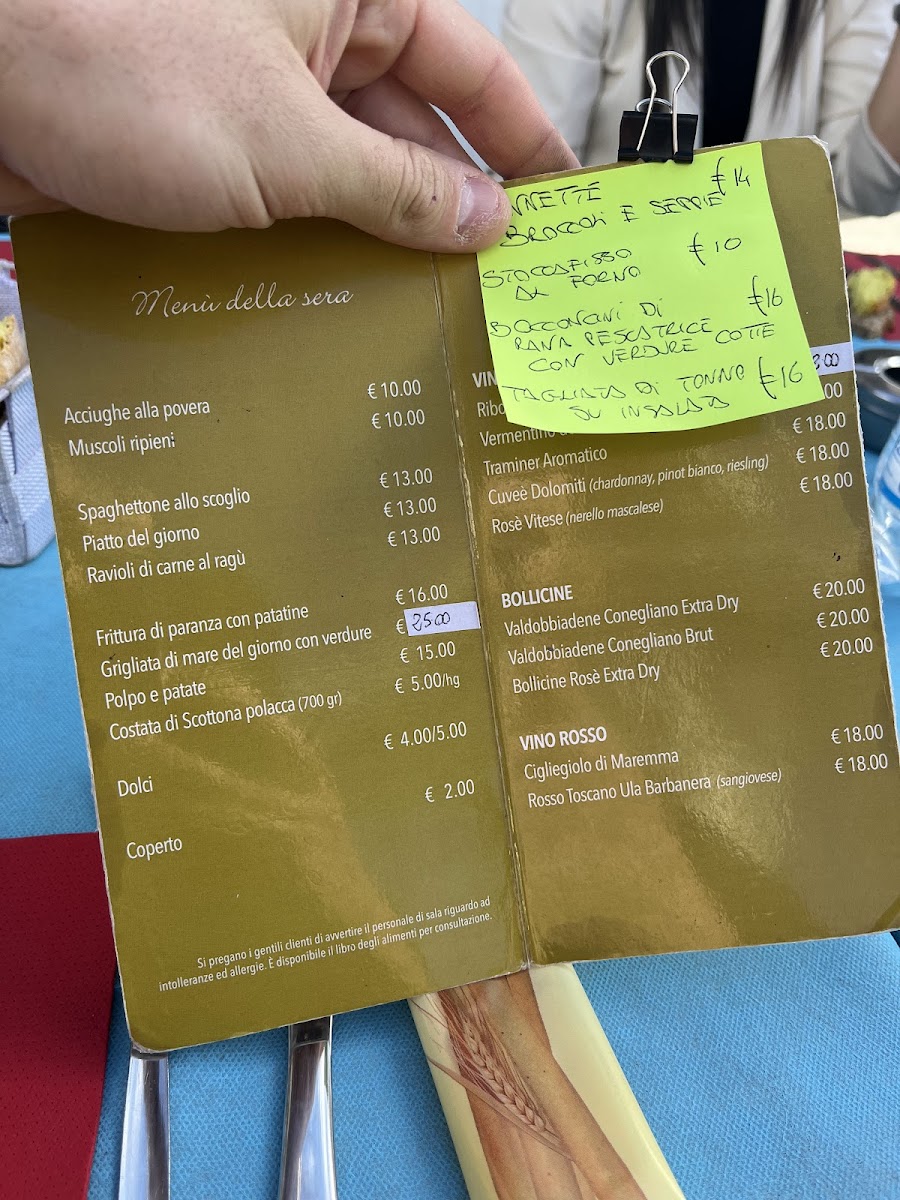 Menù della sera
Acciughe alla povera € 10.00
Muscoli ripieni € 10.00
Spaghettone allo scoglio € 13.00
Piatto del giorno € 13.00
Ravioli di carne al ragù € 13.00
Frittura di paranza con patatine € 16.00
Grigliata di mare del giorno con verdure € 25.00
Polpo e patate € 15.00
Costata di Scottona polacca (700 gr) € 5.00/hg
Dolci € 4.00/5.00
Coperto € 2.00
Si pregano i gentili clienti di avvertire il personale di sala riguardo ad
intolleranze ed allergie. È disponibile il libro degli alimenti per consultazione.
€14
BROCCOLI E SEPPIE
STOCCAFISSO €10
AL FORNO
BOCCONCINI DI €16
RANA PESCATRICE
CON VERDURE COTTE
TAGLIATA DI TONNO €16
SU INSALATA
Vermentino
Traminer Aromatico € 18.00
Cuveè Dolomiti (chardonnay, pinot bianco, riesling) € 18.00
Rosè Vitese (nerello mascalese) € 18.00
BOLLICINE
Valdobbiadene Conegliano Extra Dry € 20.00
Valdobbiadene Conegliano Brut € 20.00
Bollicine Rosè Extra Dry € 20.00
VINO ROSSO
Cigliegiolo di Maremma € 18.00
Rosso Toscano Ula Barbanera (sangiovese) € 18.00